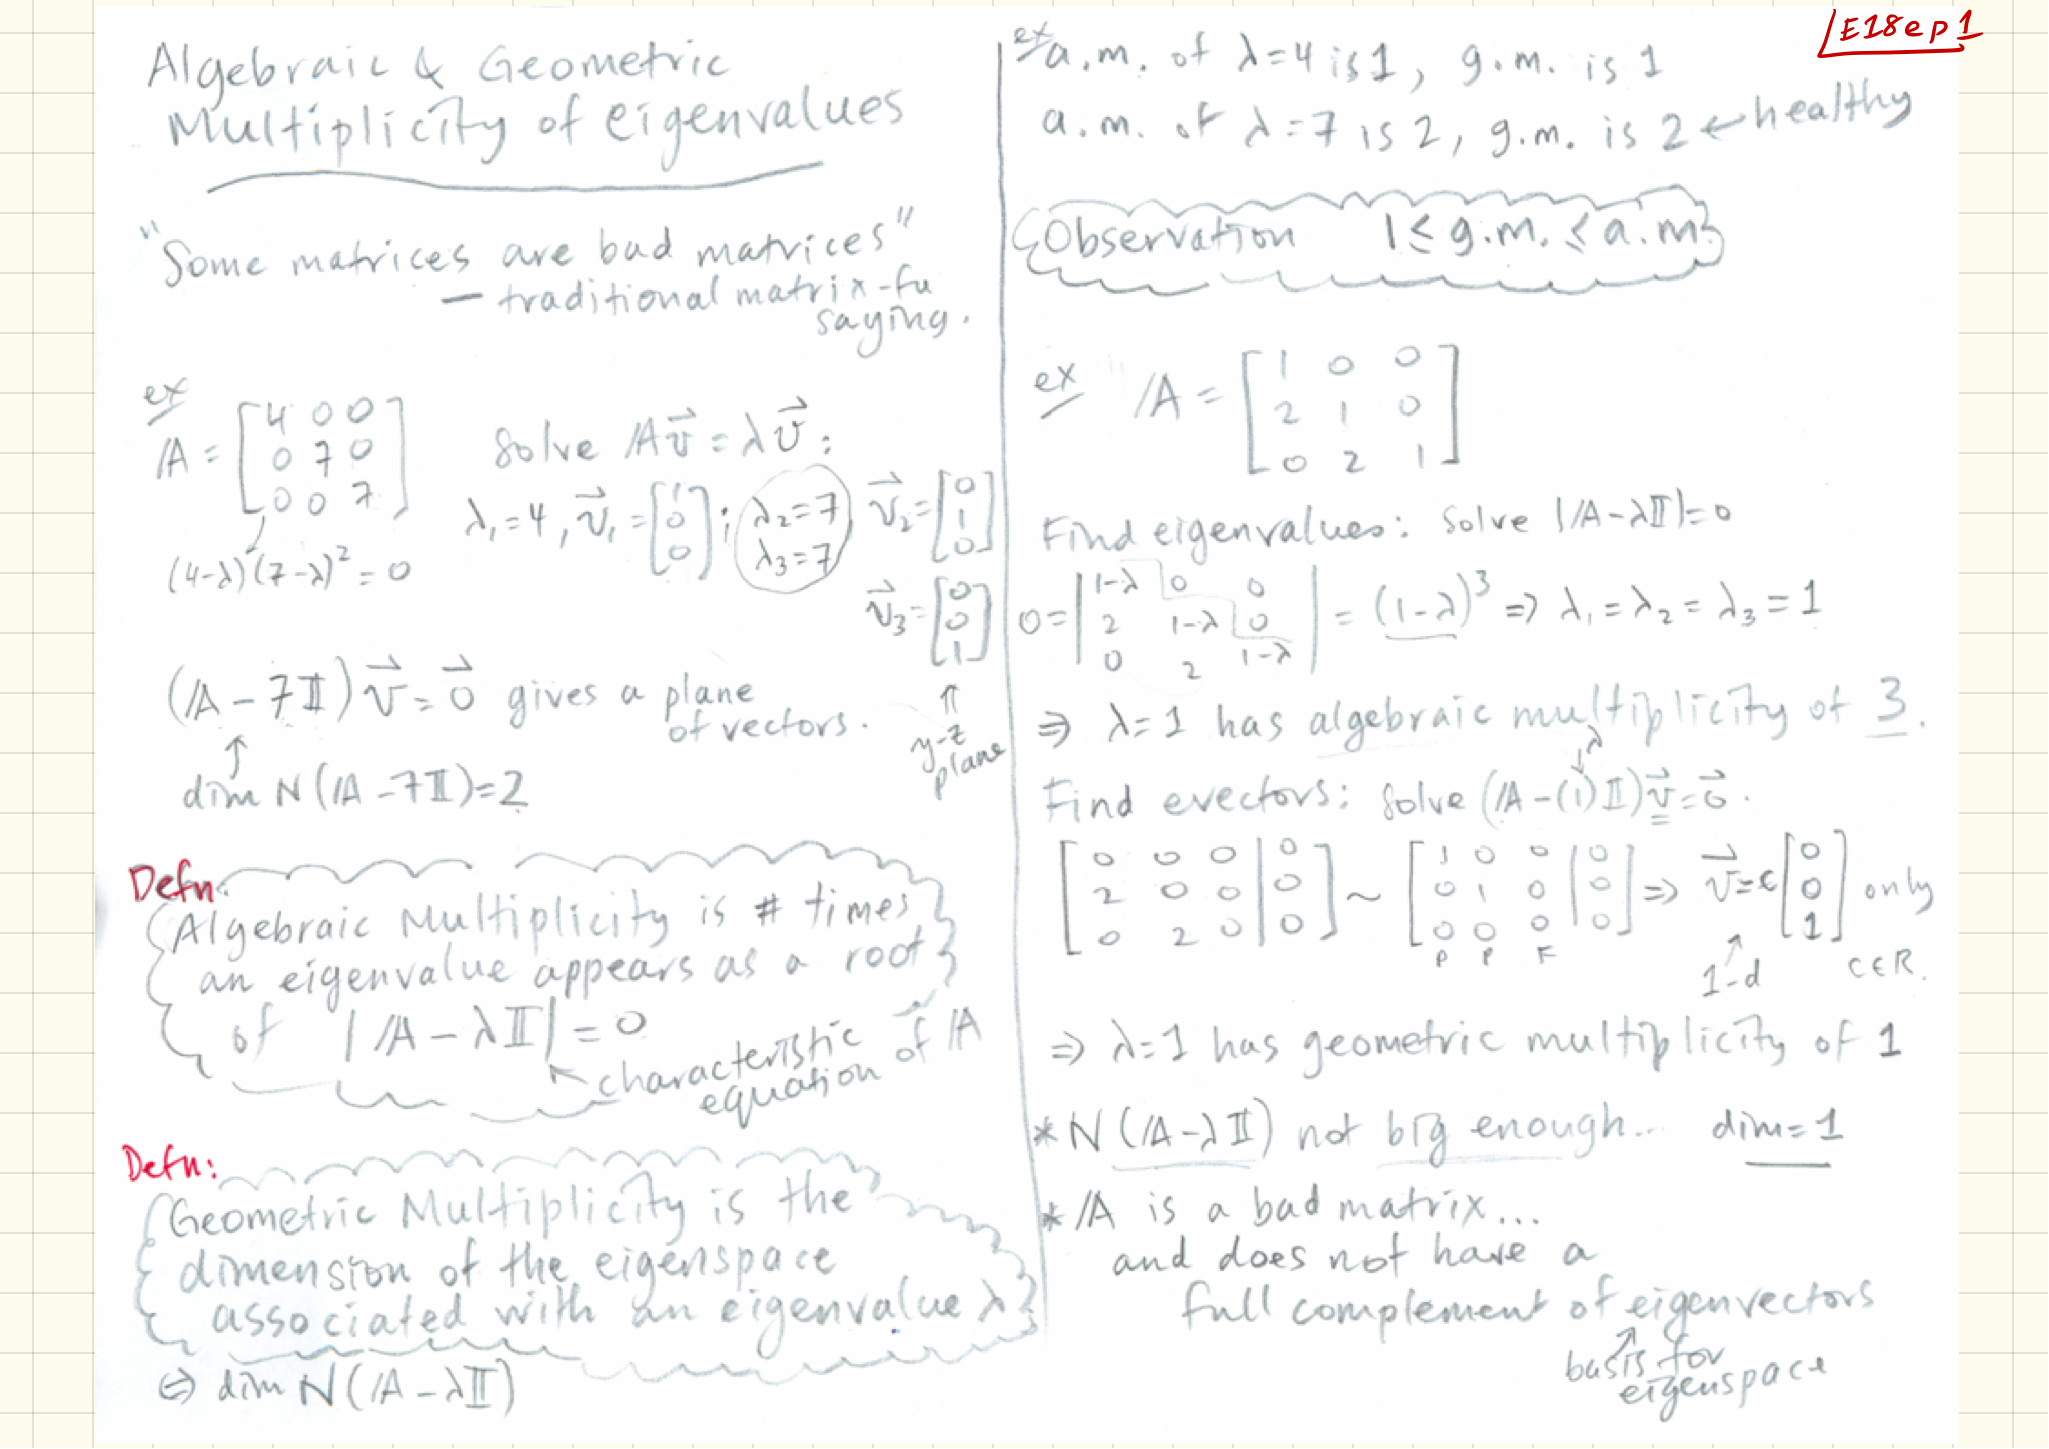 E18ep1
Algebraic & Geometric
Multiplicity of eigenvalues
"Some matrices are bad matrices"
— traditional matrix-fu
saying.
ex
A = [4 0 0
0 7 0
0 0 7]
(4-λ)(7-λ)² = 0
Solve A v⃗ = λ v⃗ :
λ₁ = 4, v⃗₁ = [1 0 0] ; λ₂ = 7 v⃗₂ = [0 1 0]
λ₃ = 7
v⃗₃ = [0 0 1]
⇑
y-z
plane
(A - 7𝕀) v⃗ = 0⃗ gives a plane
of vectors.
↑
dim N(A - 7𝕀) = 2
Defn:
Algebraic Multiplicity is # times
an eigenvalue appears as a root
of |A - λ𝕀| = 0
↖ characteristic
equation of A
Defn:
Geometric Multiplicity is the
dimension of the eigenspace
associated with an eigenvalue λ
⇔ dim N(A - λ𝕀)
ex a.m. of λ=4 is 1, g.m. is 1
a.m. of λ=7 is 2, g.m. is 2 ← healthy
Observation 1 ≤ g.m. ≤ a.m.
ex A = [1 0 0
2 1 0
0 2 1]
Find eigenvalues: Solve |A - λ𝕀| = 0
0 = |1-λ 0 0
2 1-λ 0
0 2 1-λ| = (1-λ)³ ⇒ λ₁ = λ₂ = λ₃ = 1
⇒ λ=1 has algebraic multiplicity of 3.
λ
↓
Find evectors: Solve (A - (1)𝕀) v⃗ = 0⃗.
[0 0 0 | 0
2 0 0 | 0
0 2 0 | 0] ~ [1 0 0 | 0
0 1 0 | 0
0 0 0 | 0] ⇒ v⃗ = c [0 0 1] only
P P F
↑
1-d
c∈R.
⇒ λ=1 has geometric multiplicity of 1
* N(A - λ𝕀) not big enough... dim = 1
* A is a bad matrix...
and does not have a
full complement of eigenvectors
↗
basis for
eigenspace